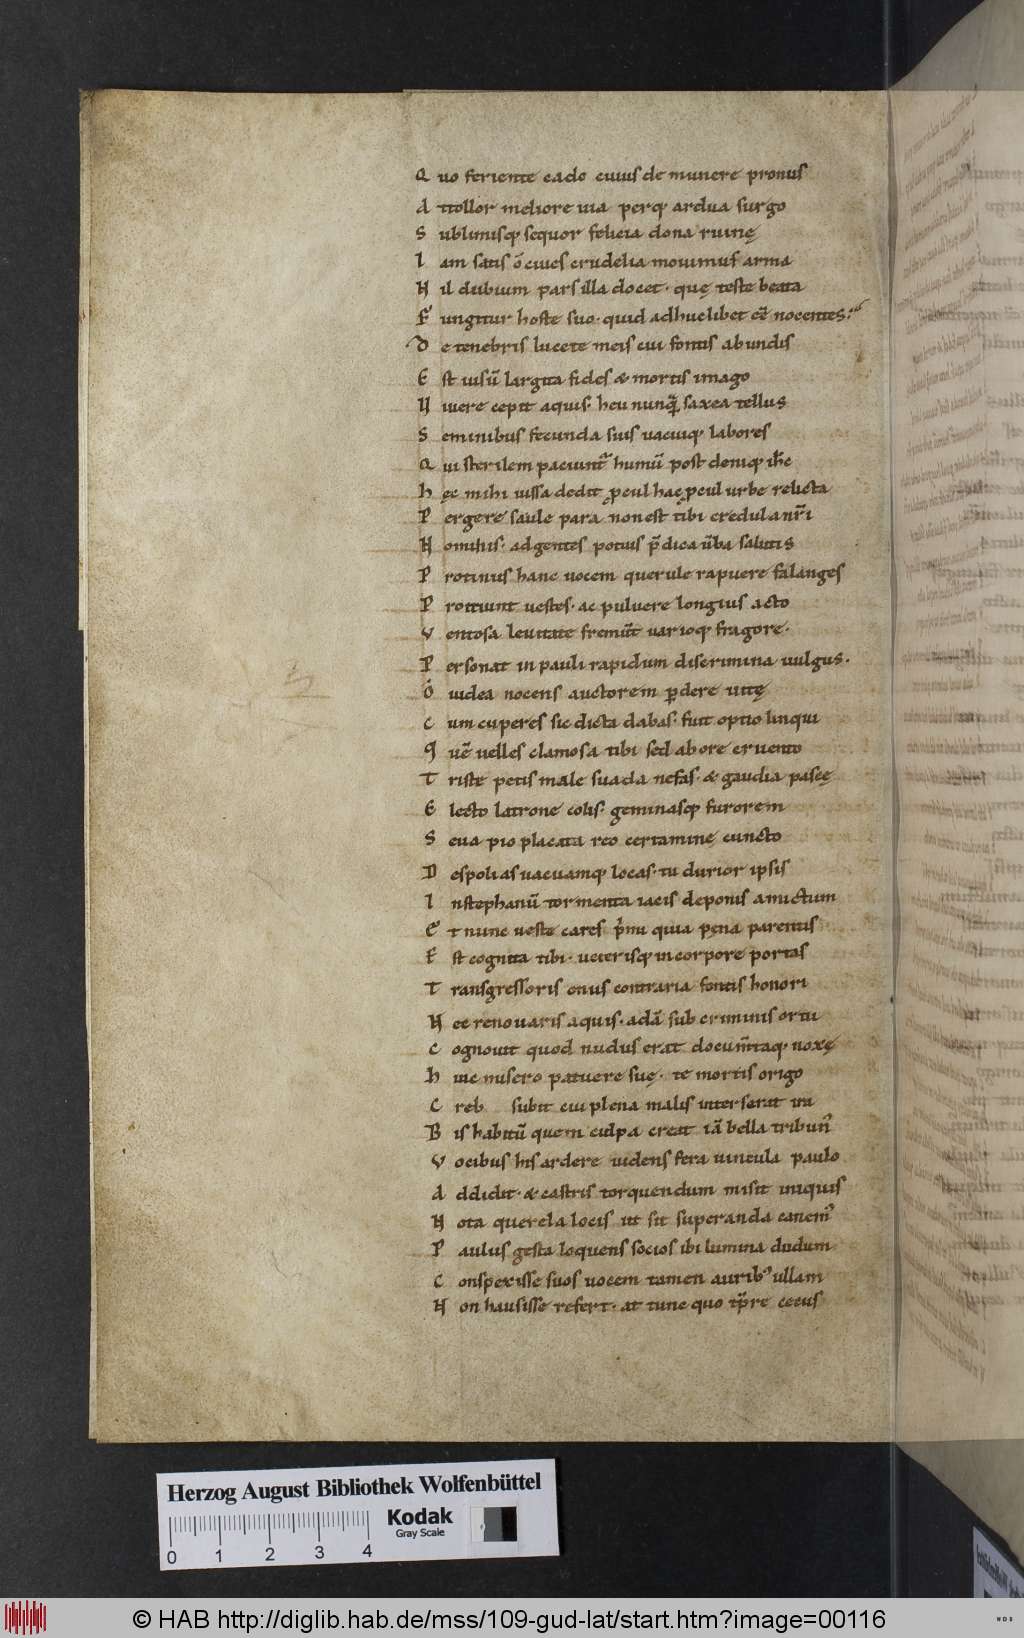 Quo feriente cado cuius de munere pronus
Attollor meliore uia perq; ardua surgo
Sublimisq; sequor felicia dona ruinę
Iam satis ō ciues crudelia mouimus arma
Nil dubium pars illa docet. quę teste beata
Fungitur hoste suo. quid adhuc libet eē nocentes?
De tenebris lucete meis cui fontis abundis
Est uisū largita fides & mortis imago
Viuere cepit aquis. heu nunquā saxea tellus
Seminibus fecunda suis uacuiq; labores
Qui sterilem paciunt humū post deniq; ihc
Hęc mihi iussa dedit ꝓcul hac ꝓcul urbe relicta
Pergere saule para non est tibi credula nr̄i
Nominis. ad gentes potius p̄dica ūba salutis
Protinus hanc uocem querule rapuere falanges
Proitiunt uestes. ac puluere longius acto
Ventosa leuitate fremūt uarioq; fragore.
Personat in pauli rapidum discrimina uulgus.
O iudea nocens auctorem ꝑdere uitę
Cum cuperes sic dicta dabas. fuit optio linqui
Quē uelles clamosa tibi sed ab ore cruento
Triste petis male suada nefas. & gaudia pascę
Electo latrone colis. geminasq; furorem
Seua pio placata reo certamine cuncto
Despolias uacuamq; locas. tu durior ipsis
In stephanū tormenta iacis deponis amictum
Et nunc ueste cares p̄mi quia pęna parentis
Est cognita tibi. ueterisq; in corpore portas
Transgressoris onus contraria fontis honori
Nec renouaris aquis. adā sub criminis ortu
Cognouit quod nudus erat documtaq; noxę
Hinc misero patuere suę. te mortis origo
Creb subit cui plena malis interserit ira
Bis habitū quem culpa creat iā bella tribun'
Vocibus his ardere uidens fera uincula paulo
Addidit. & castris torquendum misit iniquis
Nota querela locis ut sit superanda canem'
Paulus gesta loquens socios ibi lumina dudum
Conspexisse suos uocem tamen aurib' ullam
Non hausisse refert. at tunc quo tp̄re cecus
Herzog August Bibliothek Wolfenbüttel
Kodak
Gray Scale
0 1 2 3 4
© HAB http://diglib.hab.de/mss/109-gud-lat/start.htm?image=00116